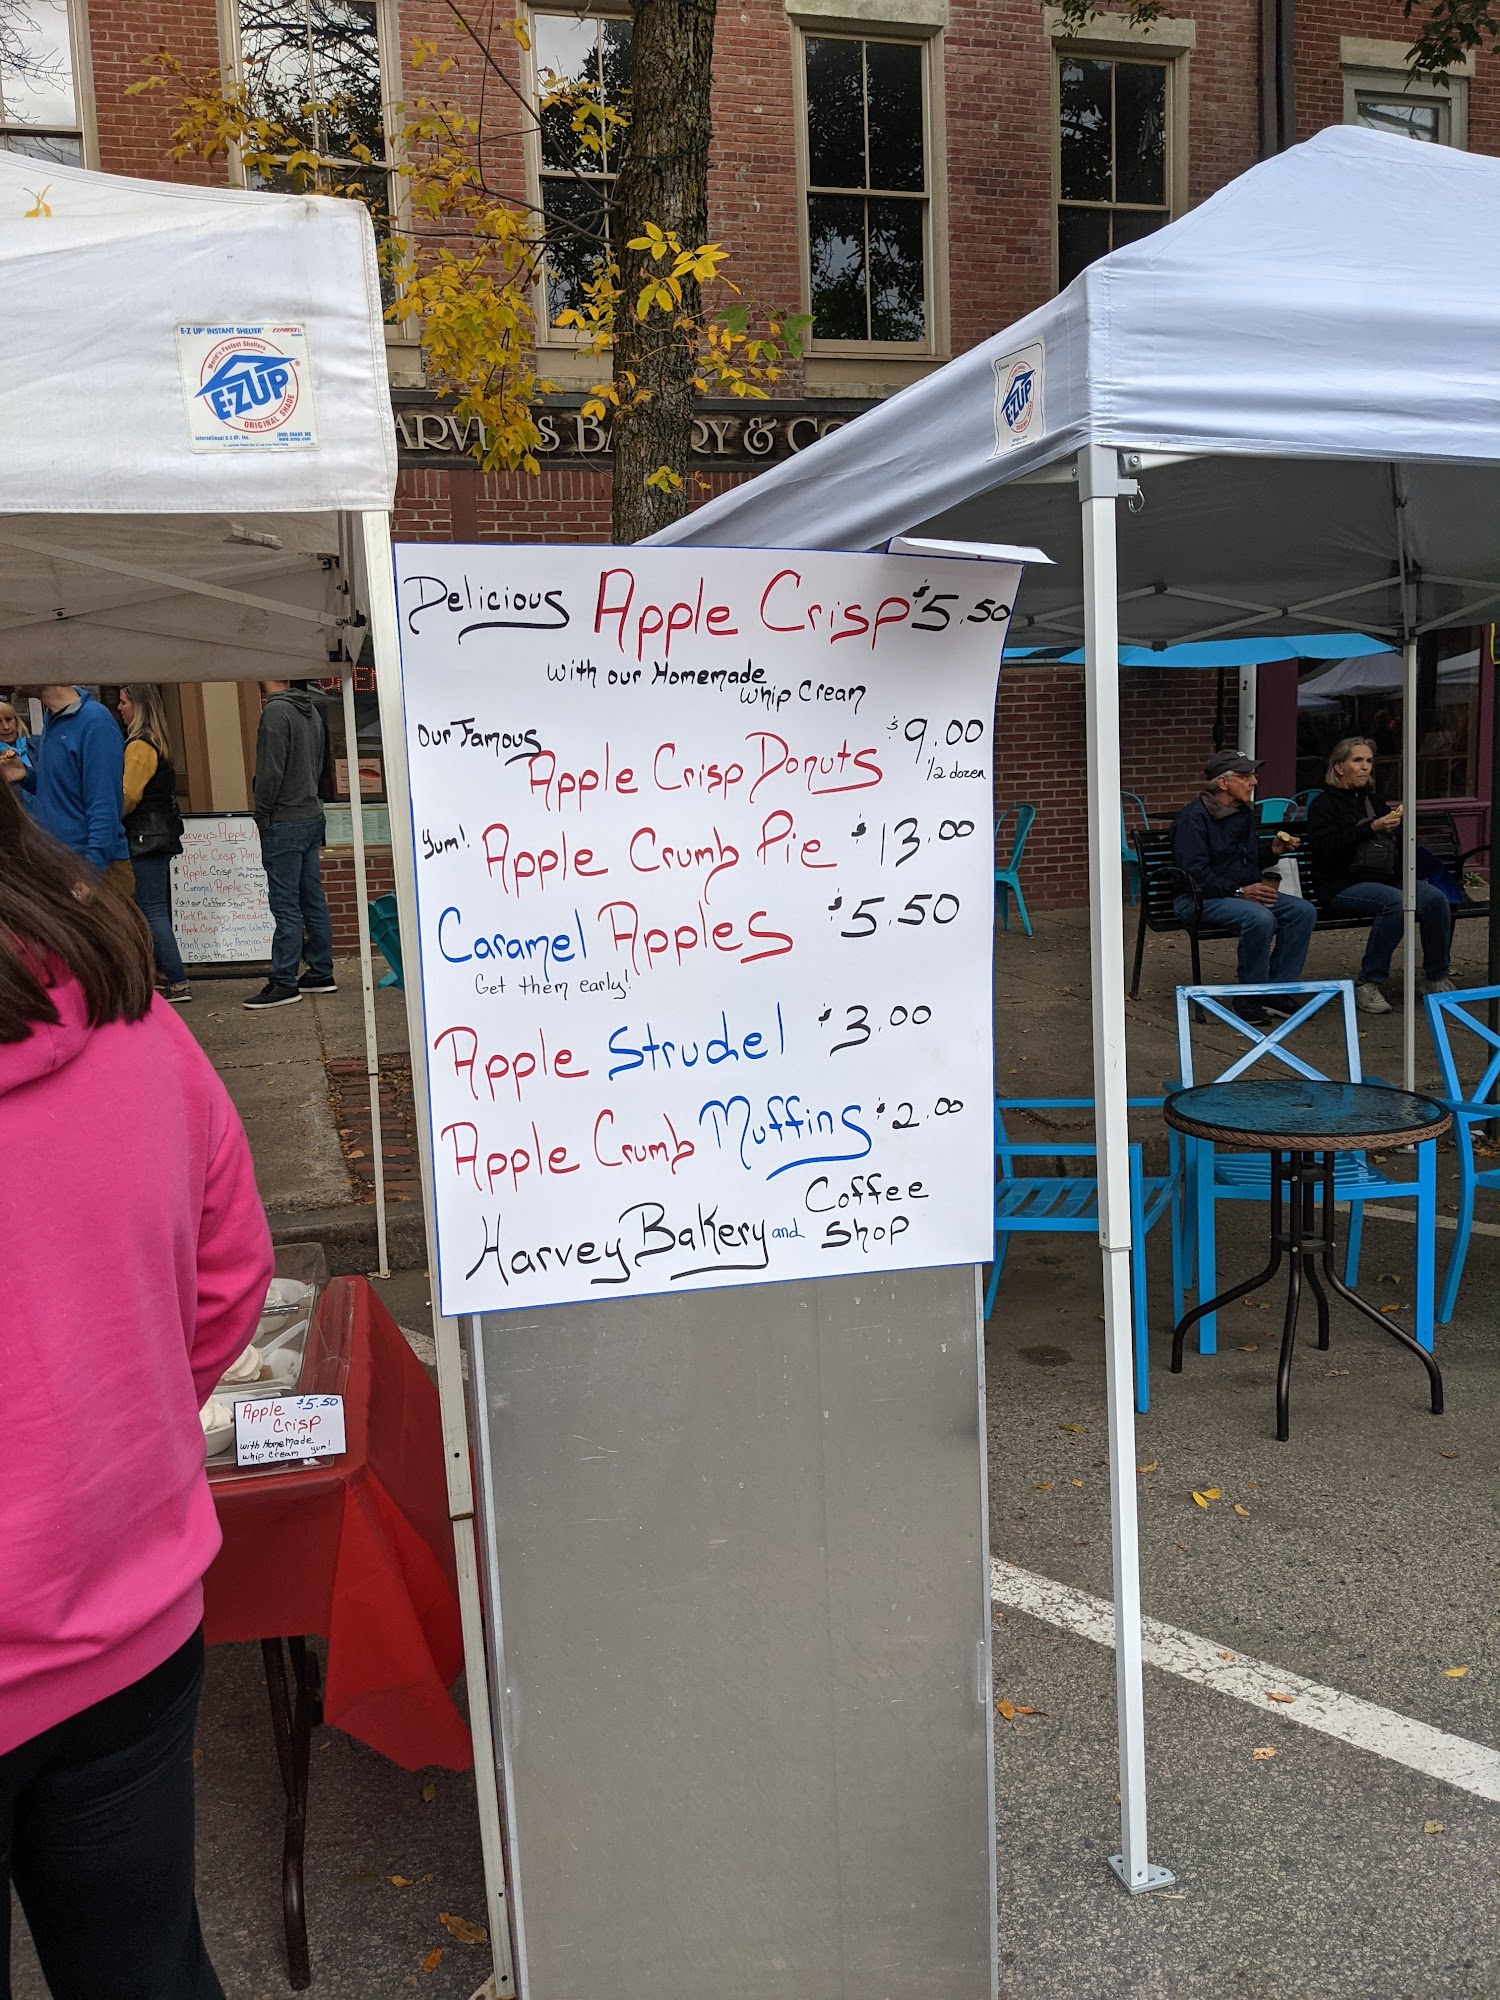 E-Z UP® INSTANT SHELTER® EXPRESS II
World's Fastest Shelters
E-Z UP®
ORIGINAL SHADE
International E-Z UP, Inc.
(800) SHADE ME
www.ezup.com
E-Z UP
ARVEY'S BAKERY & CO
OPEN
Delicious Apple Crisp $5.50
with our Homemade
whip Cream
Our Famous
Apple Crisp Donuts $9.00
1/2 dozen
Yum! Apple Crumb Pie $13.00
Caramel Apples $5.50
Get them early!
Apple Strudel $3.00
Apple Crumb Muffins $2.00
Harvey Bakery and Coffee
Shop
arvey's Apple
Apple Crisp Donu
Apple Crisp
Caramel Apples
Visit our Coffee Shop
Eggs Benedict
Apple Crisp Belgian Waffl
Enjoy the Day!
Apple $5.50
Crisp
with HomeMade
whip Cream yum!